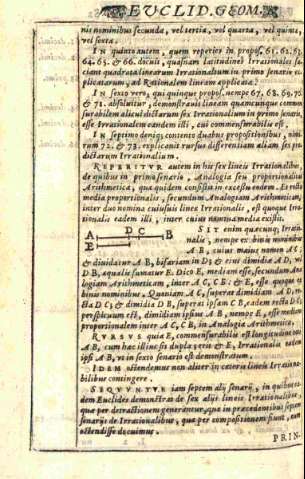 EVCLID. GEOM.
nis nominibus secunda, vel tertia, vel quarta, vel quinta,
vel sexta.
IN quinto autem, quem reperies in propos. 61. 62. 63.
64. 65. & 66. docuit, quasnam latitudines Irrationales fa-
ciant quadrata linearum Irrationalium in primo senario ex-
plicatarum, ad Rationalem lineam applicata.
IN sexto vero, qui quinque propos. nempe 67. 68. 69. 70.
& 71. absoluitur, demonstrauit lineam cuicunque commen-
surabilem alicui dictarum sex Irrationalium in primo senario,
esse Irrationalem eandem illi, cui commensurabilis est.
IN septimo denique contento duabus propositionibus, nim-
rum 72. & 73. explicauit rursus differentiam aliam sex præ-
dictarum Irrationalium.
REPERITUR autem in his sex lineis Irrationalibus,
de quibus in primo senario, Analogia seu proportionalitas
Arithmetica, quæ quidem consistit in excessu eodem. Est enim
media proportionalis, secundum Analogiam Arithmeticam,
inter duo nomina cuiusuis lineæ Irrationalis, est quoque Irra-
tionalis eadem illi, inter cuius nomina media existit.
D C
A B
E
SIT enim quæcunq; Irratio-
nalis, nempe ex binis nominibus
A B, cuius maius nomen A C;
& diuidatur A B, bifariam in D; & erit dimidia A D, vel
D B, æqualis sumatur E. Dico E, mediam esse, secundum Ana-
logiam Arithmeticam, inter A C, C B: & E, esse quoque ex
binis nominibus. Quoniam A C, superat dimidiam A D, re-
cta D C; & dimidia D B, superat ipsam C B, eadem recta D C;
perspicuum est, dimidiam ipsius A B, nempe E, esse mediam
proportionalem inter A C, C B, in Analogia Arithmetica.
RVRSVS quia E, commensurabilis est longitudine toti
A B, cum hæc illius sit dupla; erit & E, Irrationalis eadem
ipsi A B, vt in sexto senario est demonstratum.
IDEM ostendemus non aliter in cæteris lineis Irratio-
nalibus contingere.
SEQVVNTVR iam septem alij senarij, in quibus ea-
dem Euclides demonstrat de sex alijs lineis Irrationalibus,
quæ per detractionem generantur, quæ in præcedentibus septem
senarijs de Irrationalibus, quæ per compositionem fiunt, eum
ostendisse docuimus.
PRIN-